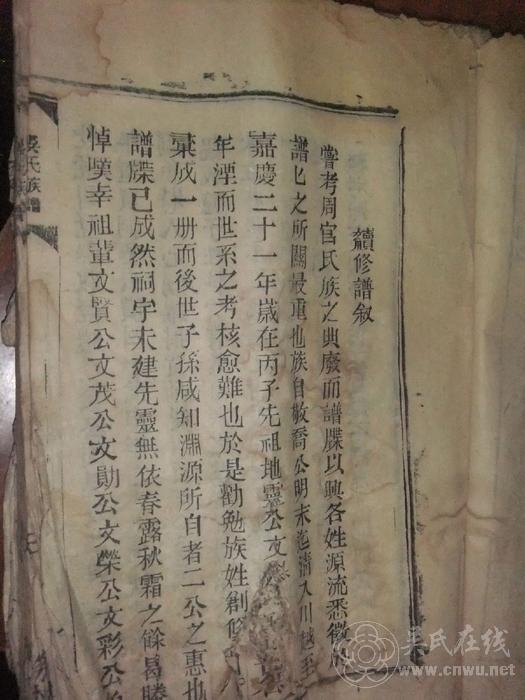 續修譜叙
嘗考周官氏族之典廢而譜牒以興各姓源流悉徵
譜匕之所關最重也族自敬喬公明末迄清入川越至
嘉慶二十一年歲在丙子先祖地靈公文
年湮而世系之考核愈難也於是勸勉族姓創修
彚成一册而後世子孫咸知淵源所自者二公之惠也
譜牒已成然祠宇未建先靈無依春露秋霜之餘曷勝
悼嘆幸祖輩文賢公文茂公文勛公文榮公文彩公
吴氏族譜
吴氏在线
www.cnwu.net